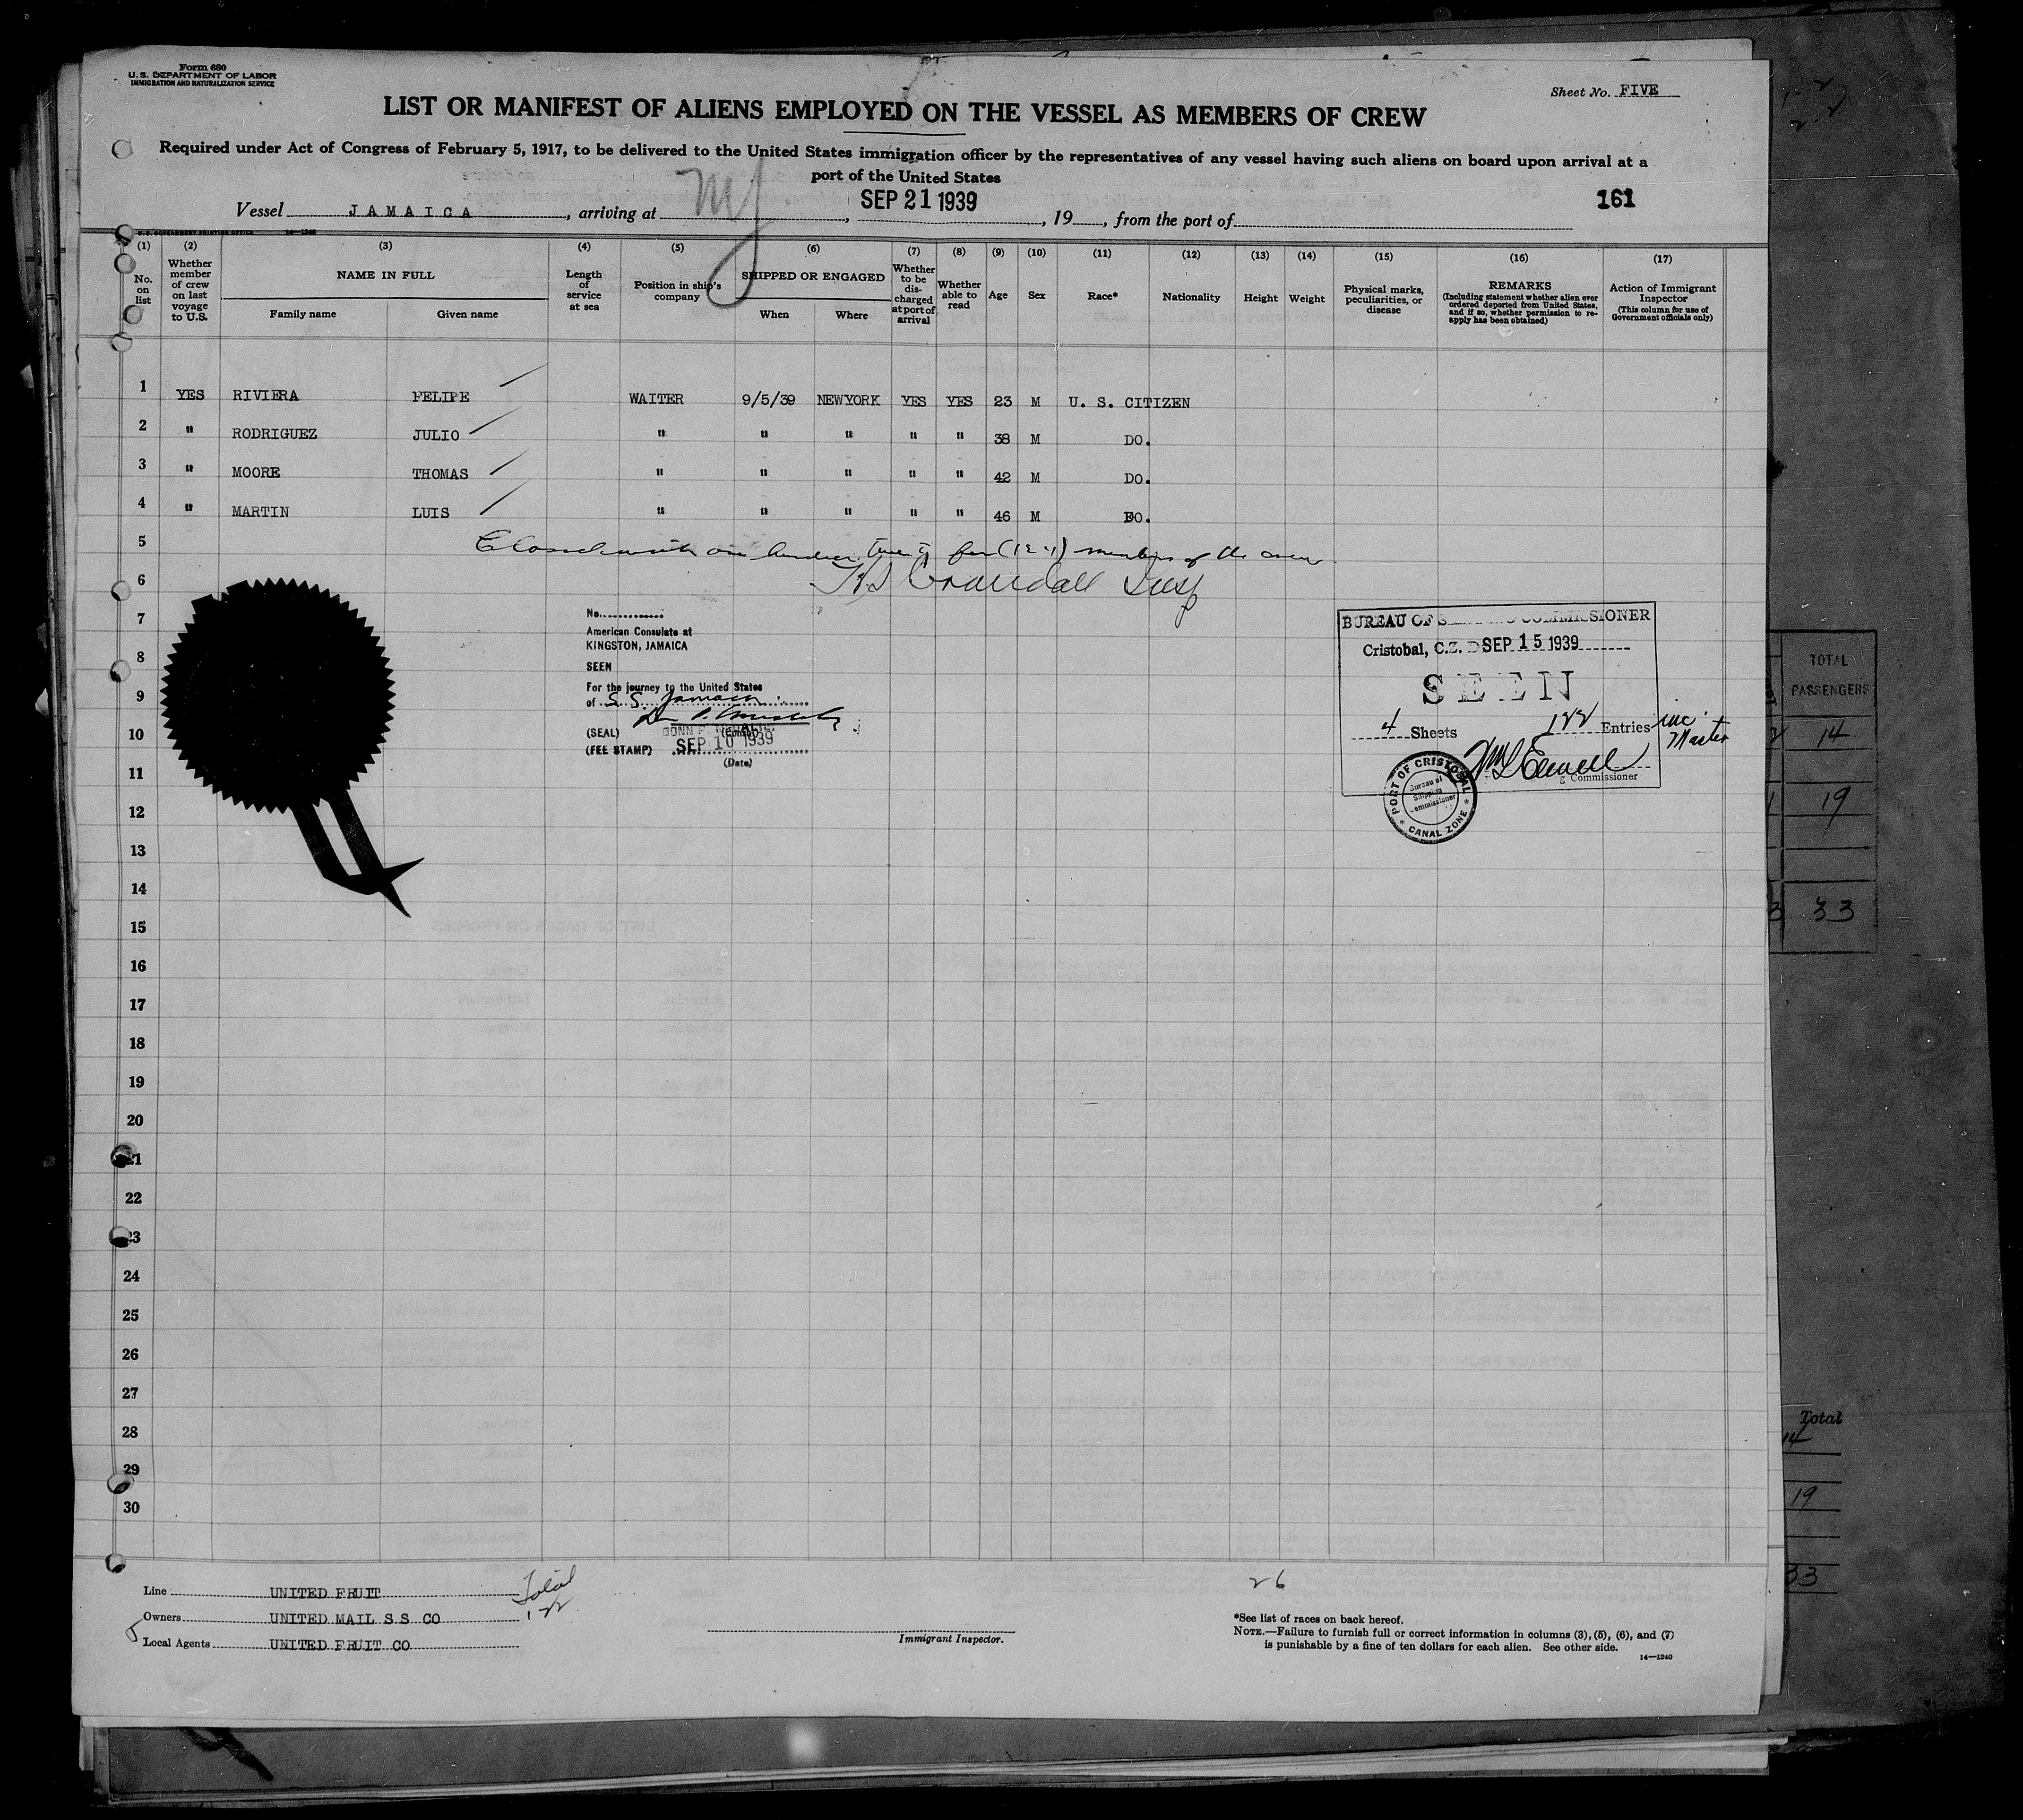 Form 680
U.S. DEPARTMENT OF LABOR
IMMIGRATION AND NATURALIZATION SERVICE
Sheet No. FIVE
LIST OR MANIFEST OF ALIENS EMPLOYED ON THE VESSEL AS MEMBERS OF CREW
Required under Act of Congress of February 5, 1917, to be delivered to the United States immigration officer by the representatives of any vessel having such aliens on board upon arrival at a
port of the United States
161
Vessel JAMAICA, arriving at NY, SEP 21 1939, 19, from the port of
U.S. GOVERNMENT PRINTING OFFICE 14-1240
(1) (2) (3) (4) (5) (6) (7) (8) (9) (10) (11) (12) (13) (14) (15) (16) (17)
No. on list
Whether member of crew on last voyage to U.S.
NAME IN FULL
Family name Given name
Length of service at sea
Position in ship's company
SHIPPED OR ENGAGED
When Where
Whether to be discharged at port of arrival
Whether able to read
Age
Sex
Race*
Nationality
Height
Weight
Physical marks, peculiarities, or disease
REMARKS
(Including statement whether alien ever ordered deported from United States, and if so, whether permission to reapply has been obtained)
Action of Immigrant Inspector
(This column for use of Government officials only)
1 YES RIVIERA FELIPE WAITER 9/5/39 NEWYORK YES YES 23 M U. S. CITIZEN
2 " RODRIGUEZ JULIO " " " " " 38 M DO.
3 " MOORE THOMAS " " " " " 42 M DO.
4 " MARTIN LUIS " " " " " 46 M DO.
5 Closed with one hundred twenty members of the crew
6 Crandall Insp
7
8
9
10
11
12
13
14
15
16
17
18
19
20
21
22
23
24
25
26
27
28
29
30
No.
American Consulate at
KINGSTON, JAMAICA
SEEN
For the journey to the United States
of S.S. Jamaica
(SEAL) (Consul)
(FEE STAMP) SEP 10 1939
(Date)
BUREAU OF SHIPPING COMMISSIONER
Cristobal, C.Z. SEP 15 1939
SEEN
4 Sheets 122 Entries inc. Master
Commissioner
PORT OF CRISTOBAL
Bureau of Shipping Commissioner
* CANAL ZONE *
TOTAL
PASSENGERS
14
19
33
Total
14
19
33
Line UNITED FRUIT
Total
122
Owners UNITED MAIL S S CO
Local Agents UNITED FRUIT CO
Immigrant Inspector.
26
*See list of races on back hereof.
NOTE.—Failure to furnish full or correct information in columns (3), (5), (6), and (7)
is punishable by a fine of ten dollars for each alien. See other side.
14—1240